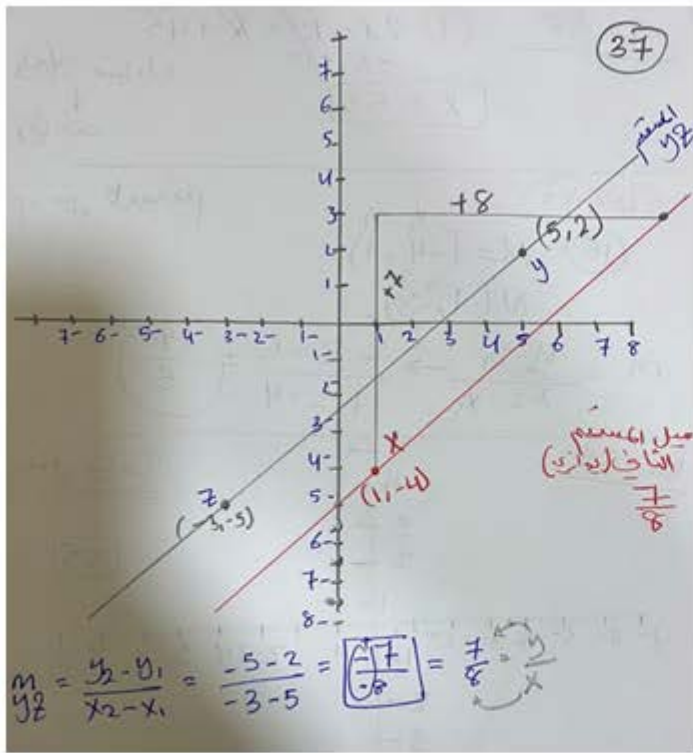 37
7
6
5
4
3
2
1
المستقيم
yz
+8
(5,2)
y
+7
7- 6- 5- 4- 3- 2- 1-
1 2 3 4 5 6 7 8
1-
2-
3-
4-
5-
6-
7-
8-
x
(1,-4)
z
(-3,-5)
ميل المستقيم
الثاني (يوازي)
7/8
m yz = y₂-y₁/x₂-x₁ = -5-2/-3-5 = -7/-8 = 7/8 = y/x